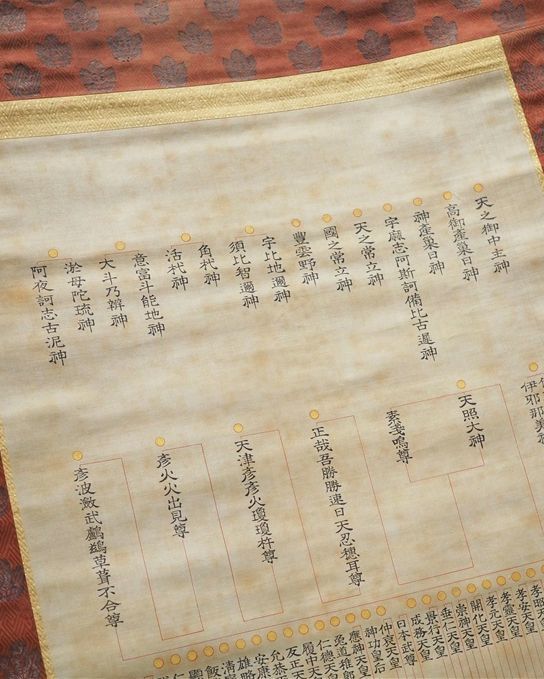 天之御中主神
高御產巢日神
神產巢日神
宇麻志阿斯訶備比古遲神
天之常立神
國之常立神
豐雲野神
宇比地邇神
須比智邇神
角杙神
活杙神
意富斗能地神
大斗乃辨神
淤母陀琉神
阿夜訶志古泥神
伊耶那美神
天照大神
素戔嗚尊
正哉吾勝勝速日天忍穗耳尊
天津彥彥火瓊瓊杵尊
彥火火出見尊
彥波瀲武鸕鷀草葺不合尊
孝安天皇
孝靈天皇
孝元天皇
開化天皇
崇神天皇
垂仁天皇
景行天皇
成務天皇
日本武尊
仲哀天皇
神功皇后
應神天皇
菟道稚郎
仁德天皇
履中天皇
反正天
允恭
安康
雄略
清寧
飯
顯
仁